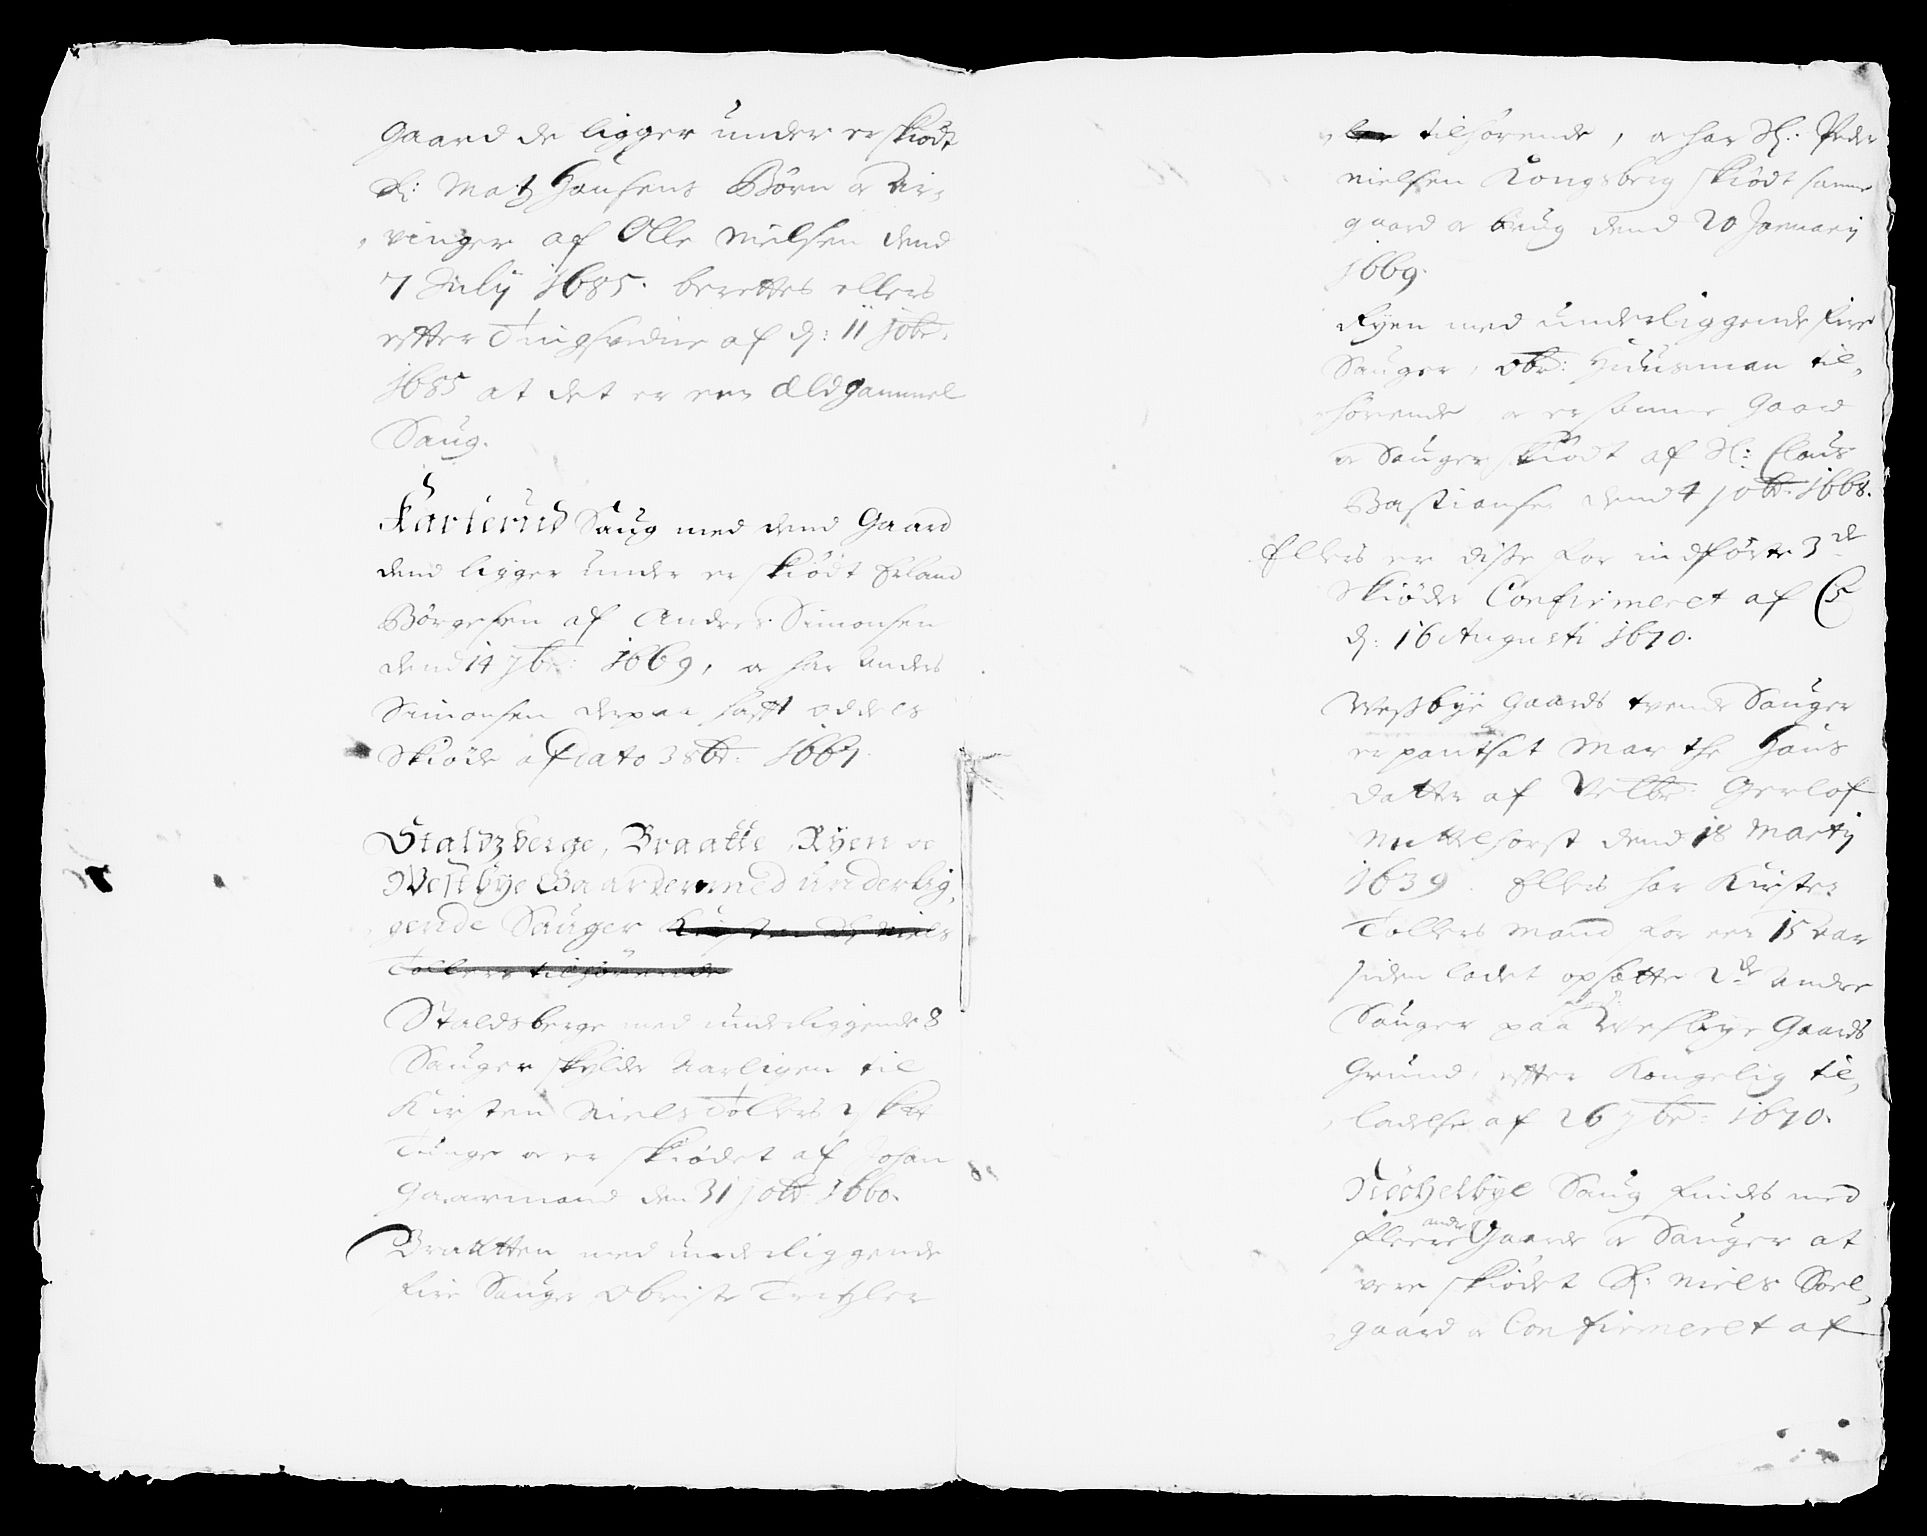 Gaard de ligger under er skiødt
S: Matz Hansens Børn oc Ar-
vinger af Olle Nielsen dend
7 July 1685. berettes ellers
efter Tingsvidne af d: 11 jobr:
1685 at det er een Ældgammel
Saug.
Karlerud Saug med dend Gaard
dend ligger under er skiødt Erland
Børgesen af Anders Simonsen
dend 14 7br: 1669, oc har Anders
Simonsen derpaa hafft oddels
Skiøde af dato 3 8br: 1667.
Staldzberge, Braatte, Ryen oc
Westbye Gaarder med underlig,
gende Sauger Kirsten Niels
Tollers tilhørende
Staldsberge med underliggende 8
Sauger skylder Aarligen til
Kirsten Niels Tollers 2 skt
Tunge oc er skiødet af Johan
Gaarmand den 31 jobr: 1660.
Braatten med underliggende
fire Sauger Obriste Tritzler
tilhørende, oc har Sl: Peder
Nielsen Kongsberg skiødt samme
gaard oc brug dend 20 January
1669.
Ryen med underliggende fire
Sauger, Obr: Huusman til,
hørende oc er samme Gaard
oc Sauger skiødt af Sl: Claus
Bastiansen dend 4 jobr: 1668.
Ellers er disse for indførte 3de
Skiøder Confirmeret af C5
d: 16 Augusti 1670.
Westbye Gaards tvende Sauger
er pantsat Marthe Hans
Datter af Velbr: Gerlof
Nettelhorst dend 18 Martij
1639. Ellers har Kirsten
Tollers Mand for een 15 Aar
siden ladet opsætte 2de Andre
Sauger paa Westbye Gaards
Grund, efter Kongelig til,
ladelse af 26 7br: 1670.
Nechelbye Saug findes med
fleere andre Gaarde oc Sauger at
vere skiødet S: Niels Soel,
gaard oc Confirmeret af